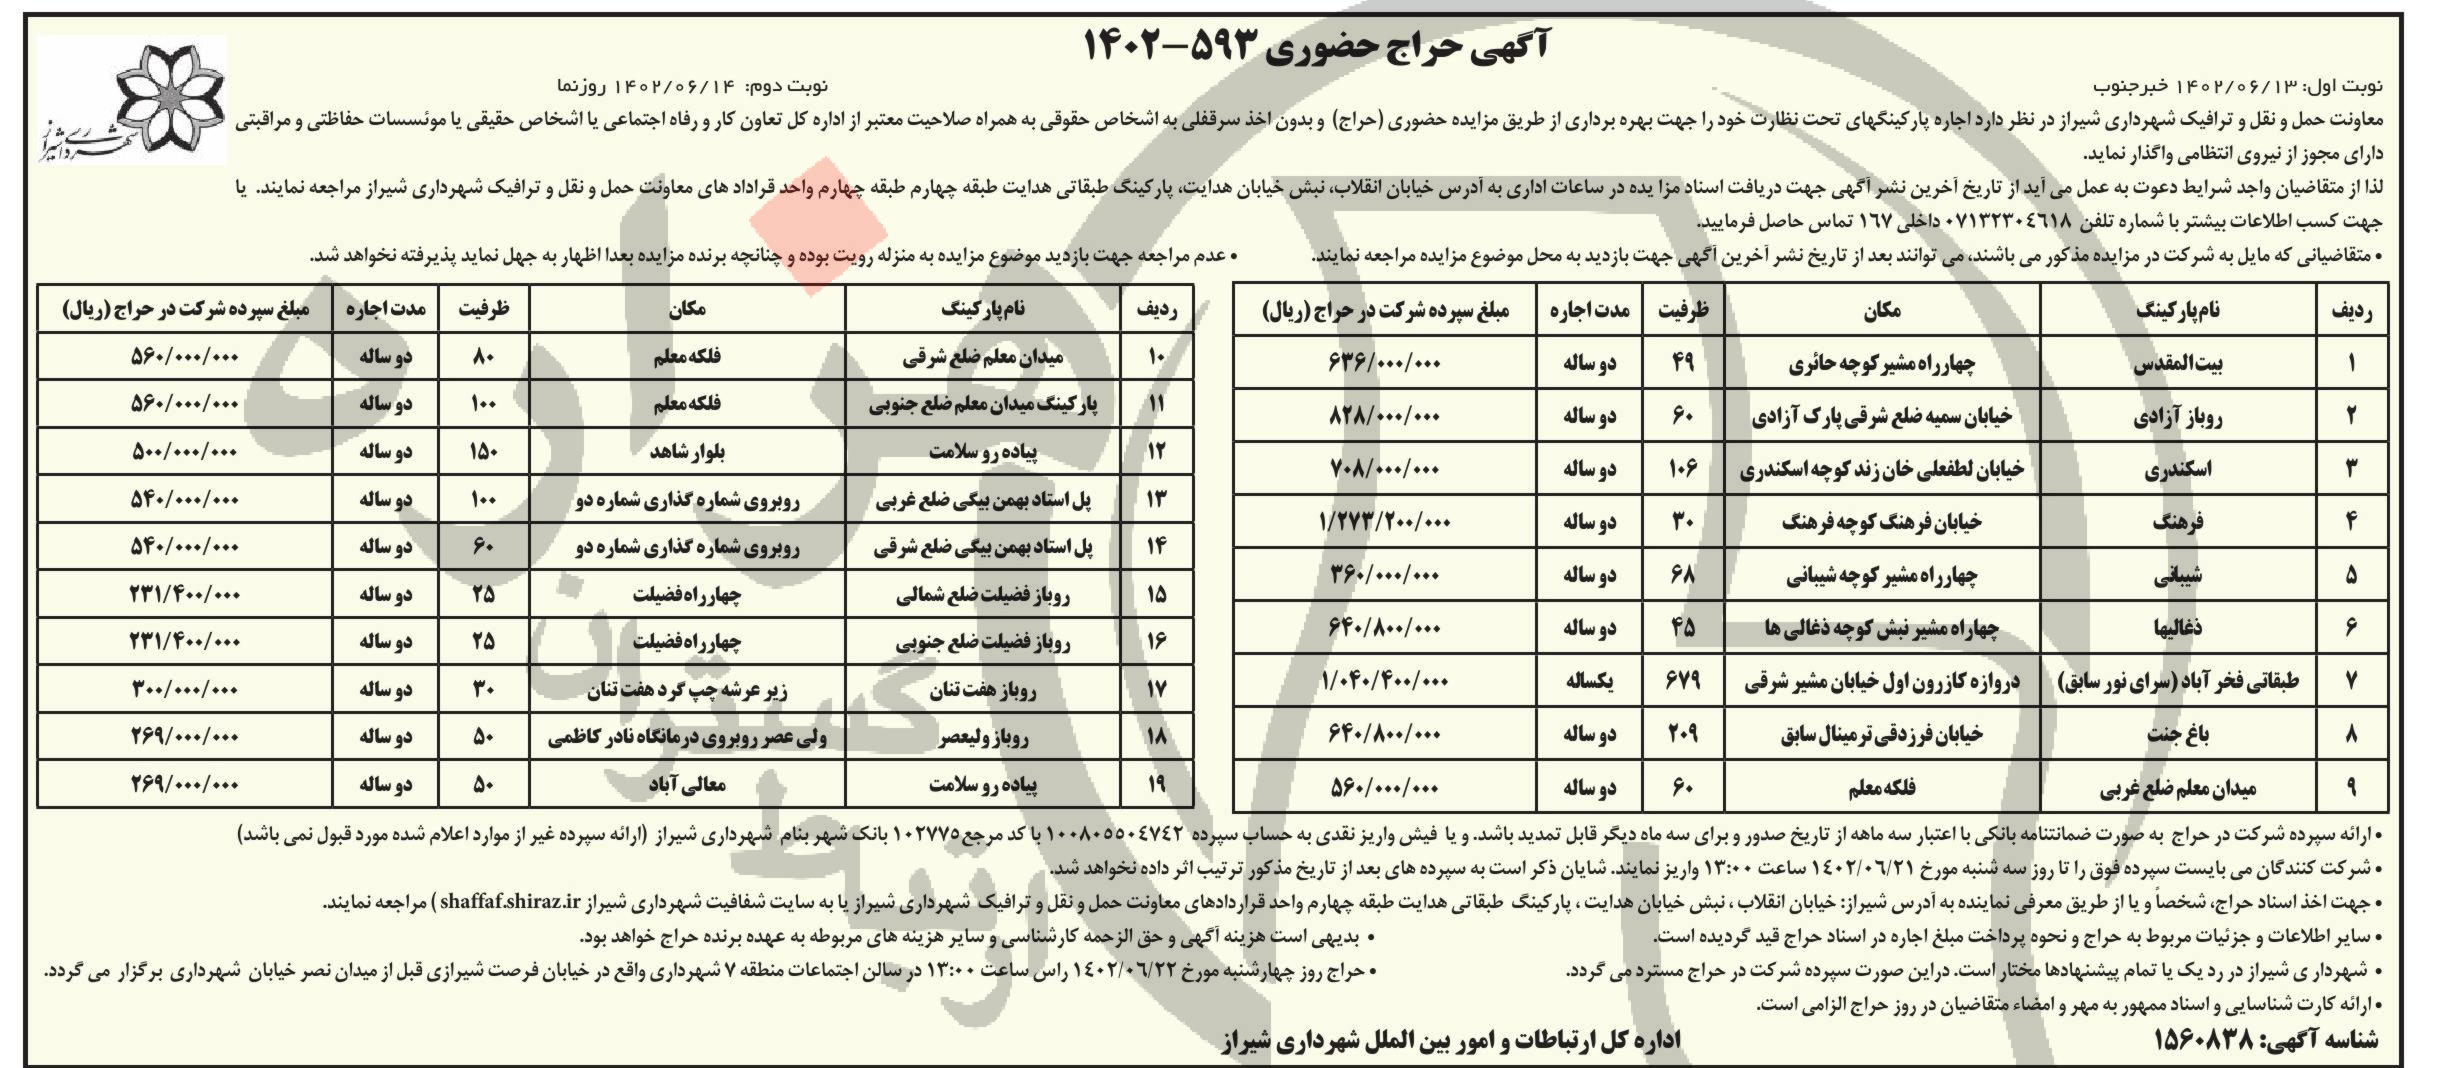 آگهی حراج حضوری ۵۹۳-۱۴۰۲
نوبت اول: ۱۴۰۲/۰۶/۱۳ خبرجنوب
نوبت دوم: ۱۴۰۲/۰۶/۱۴ روزنما
شهرداری شیراز
معاونت حمل و نقل و ترافیک شهرداری شیراز در نظر دارد اجاره پارکینگهای تحت نظارت خود را جهت بهره برداری از طریق مزایده حضوری (حراج) و بدون اخذ سرقفلی به اشخاص حقوقی به همراه صلاحیت معتبر از اداره کل تعاون کار و رفاه اجتماعی یا اشخاص حقیقی یا موئسسات حفاظتی و مراقبتی
دارای مجوز از نیروی انتظامی واگذار نماید.
لذا از متقاضیان واجد شرایط دعوت به عمل می آید از تاریخ آخرین نشر آگهی جهت دریافت اسناد مزا یده در ساعات اداری به آدرس خیابان انقلاب، نبش خیابان هدایت، پارکینگ طبقاتی هدایت طبقه چهارم طبقه چهارم واحد قراداد های معاونت حمل و نقل و ترافیک شهرداری شیراز مراجعه نمایند. یا
جهت کسب اطلاعات بیشتر با شماره تلفن ۰۷۱۳۲۳۰٤٦۱۸ داخلی ۱٦۷ تماس حاصل فرمایید.
• متقاضیانی که مایل به شرکت در مزایده مذکور می باشند، می توانند بعد از تاریخ نشر آخرین آگهی جهت بازدید به محل موضوع مزایده مراجعه نمایند.
• عدم مراجعه جهت بازدید موضوع مزایده به منزله رویت بوده و چنانچه برنده مزایده بعدا اظهار به جهل نماید پذیرفته نخواهد شد.
ردیف نام پارکینگ مکان ظرفیت مدت اجاره مبلغ سپرده شرکت در حراج (ریال)
۱ بیت المقدس چهارراه مشیر کوچه حائری ۴۹ دو ساله ۶۳۶/۰۰۰/۰۰۰
۲ روباز آزادی خیابان سمیه ضلع شرقی پارک آزادی ۶۰ دو ساله ۸۲۸/۰۰۰/۰۰۰
۳ اسکندری خیابان لطفعلی خان زند کوچه اسکندری ۱۰۶ دو ساله ۷۰۸/۰۰۰/۰۰۰
۴ فرهنگ خیابان فرهنگ کوچه فرهنگ ۳۰ دو ساله ۱/۲۷۳/۲۰۰/۰۰۰
۵ شیبانی چهارراه مشیر کوچه شیبانی ۶۸ دو ساله ۳۶۰/۰۰۰/۰۰۰
۶ ذغالیها چهاراه مشیر نبش کوچه ذغالی ها ۴۵ دو ساله ۶۴۰/۸۰۰/۰۰۰
۷ طبقاتی فخر آباد (سرای نور سابق) دروازه کازرون اول خیابان مشیر شرقی ۶۷۹ یکساله ۱/۰۴۰/۴۰۰/۰۰۰
۸ باغ جنت خیابان فرزدقی ترمینال سابق ۲۰۹ دو ساله ۶۴۰/۸۰۰/۰۰۰
۹ میدان معلم ضلع غربی فلکه معلم ۶۰ دو ساله ۵۶۰/۰۰۰/۰۰۰
ردیف نام پارکینگ مکان ظرفیت مدت اجاره مبلغ سپرده شرکت در حراج (ریال)
۱۰ میدان معلم ضلع شرقی فلکه معلم ۸۰ دو ساله ۵۶۰/۰۰۰/۰۰۰
۱۱ پارکینگ میدان معلم ضلع جنوبی فلکه معلم ۱۰۰ دو ساله ۵۶۰/۰۰۰/۰۰۰
۱۲ پیاده رو سلامت بلوار شاهد ۱۵۰ دو ساله ۵۰۰/۰۰۰/۰۰۰
۱۳ پل استاد بهمن بیگی ضلع غربی روبروی شماره گذاری شماره دو ۱۰۰ دو ساله ۵۴۰/۰۰۰/۰۰۰
۱۴ پل استاد بهمن بیگی ضلع شرقی روبروی شماره گذاری شماره دو ۶۰ دو ساله ۵۴۰/۰۰۰/۰۰۰
۱۵ روباز فضیلت ضلع شمالی چهارراه فضیلت ۲۵ دو ساله ۲۳۱/۴۰۰/۰۰۰
۱۶ روباز فضیلت ضلع جنوبی چهارراه فضیلت ۲۵ دو ساله ۲۳۱/۴۰۰/۰۰۰
۱۷ روباز هفت تنان زیر عرشه چپ گرد هفت تنان ۳۰ دو ساله ۳۰۰/۰۰۰/۰۰۰
۱۸ روباز ولیعصر ولی عصر روبروی درمانگاه نادر کاظمی ۵۰ دو ساله ۲۶۹/۰۰۰/۰۰۰
۱۹ پیاده رو سلامت معالی آباد ۵۰ دو ساله ۲۶۹/۰۰۰/۰۰۰
• ارائه سپرده شرکت در حراج به صورت ضمانتنامه بانکی با اعتبار سه ماهه از تاریخ صدور و برای سه ماه دیگر قابل تمدید باشد. و یا فیش واریز نقدی به حساب سپرده ۱۰۰۸۰۵۵۰٤۷٤۲ با کد مرجع ۱۰۲۷۷۵ بانک شهر بنام شهرداری شیراز (ارائه سپرده غیر از موارد اعلام شده مورد قبول نمی باشد)
• شرکت کنندگان می بایست سپرده فوق را تا روز سه شنبه مورخ ۱٤۰۲/۰٦/۲۱ ساعت ۱۳:۰۰ واریز نمایند. شایان ذکر است به سپرده های بعد از تاریخ مذکور ترتیب اثر داده نخواهد شد.
• جهت اخذ اسناد حراج، شخصاً و یا از طریق معرفی نماینده به آدرس شیراز: خیابان انقلاب ، نبش خیابان هدایت ، پارکینگ طبقاتی هدایت طبقه چهارم واحد قراردادهای معاونت حمل و نقل و ترافیک شهرداری شیراز یا به سایت شفافیت شهرداری شیراز shaffaf.shiraz.ir ) مراجعه نمایند.
• سایر اطلاعات و جزئیات مربوط به حراج و نحوه پرداخت مبلغ اجاره در اسناد حراج قید گردیده است.
• بدیهی است هزینه آگهی و حق الزحمه کارشناسی و سایر هزینه های مربوطه به عهده برنده حراج خواهد بود.
• شهردار ی شیراز در رد یک یا تمام پیشنهادها مختار است. دراین صورت سپرده شرکت در حراج مسترد می گردد.
• حراج روز چهارشنبه مورخ ۱٤۰۲/۰٦/۲۲ راس ساعت ۱۳:۰۰ در سالن اجتماعات منطقه ۷ شهرداری واقع در خیابان فرصت شیرازی قبل از میدان نصر خیابان شهرداری برگزار می گردد.
• ارائه کارت شناسایی و اسناد ممهور به مهر و امضاء متقاضیان در روز حراج الزامی است.
شناسه آگهی: ۱۵۶۰۸۳۸
اداره کل ارتباطات و امور بین الملل شهرداری شیراز
هزاره
گستران
ارتباط